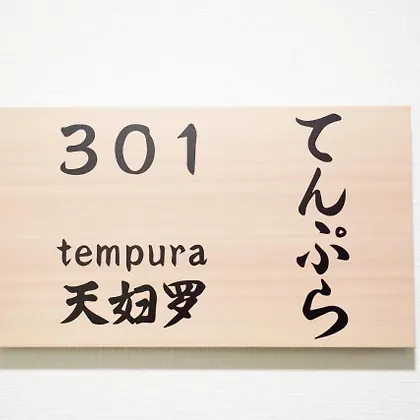 301
tempura
天妇罗
てんぷら